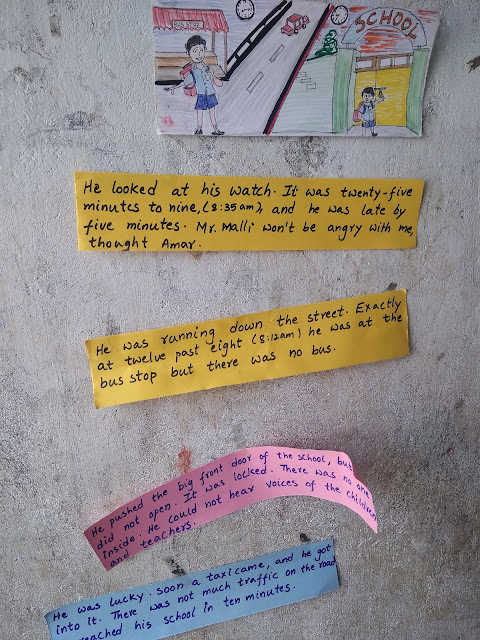 BUS STOP
SCHOOL
He looked at his watch. It was twenty-five
minutes to nine, (8:35am), and he was late by
five minutes. Mr. Malli won't be angry with me,
thought Amar.
He was running down the street. Exactly
at twelve past eight (8:12am) he was at the
bus stop but there was no bus.
He pushed the big front door of the school, but
did not open. It was locked. There was no one
inside. He could not hear voices of the children
and teachers.
He was lucky. soon a taxi came, and he got
into it. There was not much traffic on the road
reached his school in ten minutes.